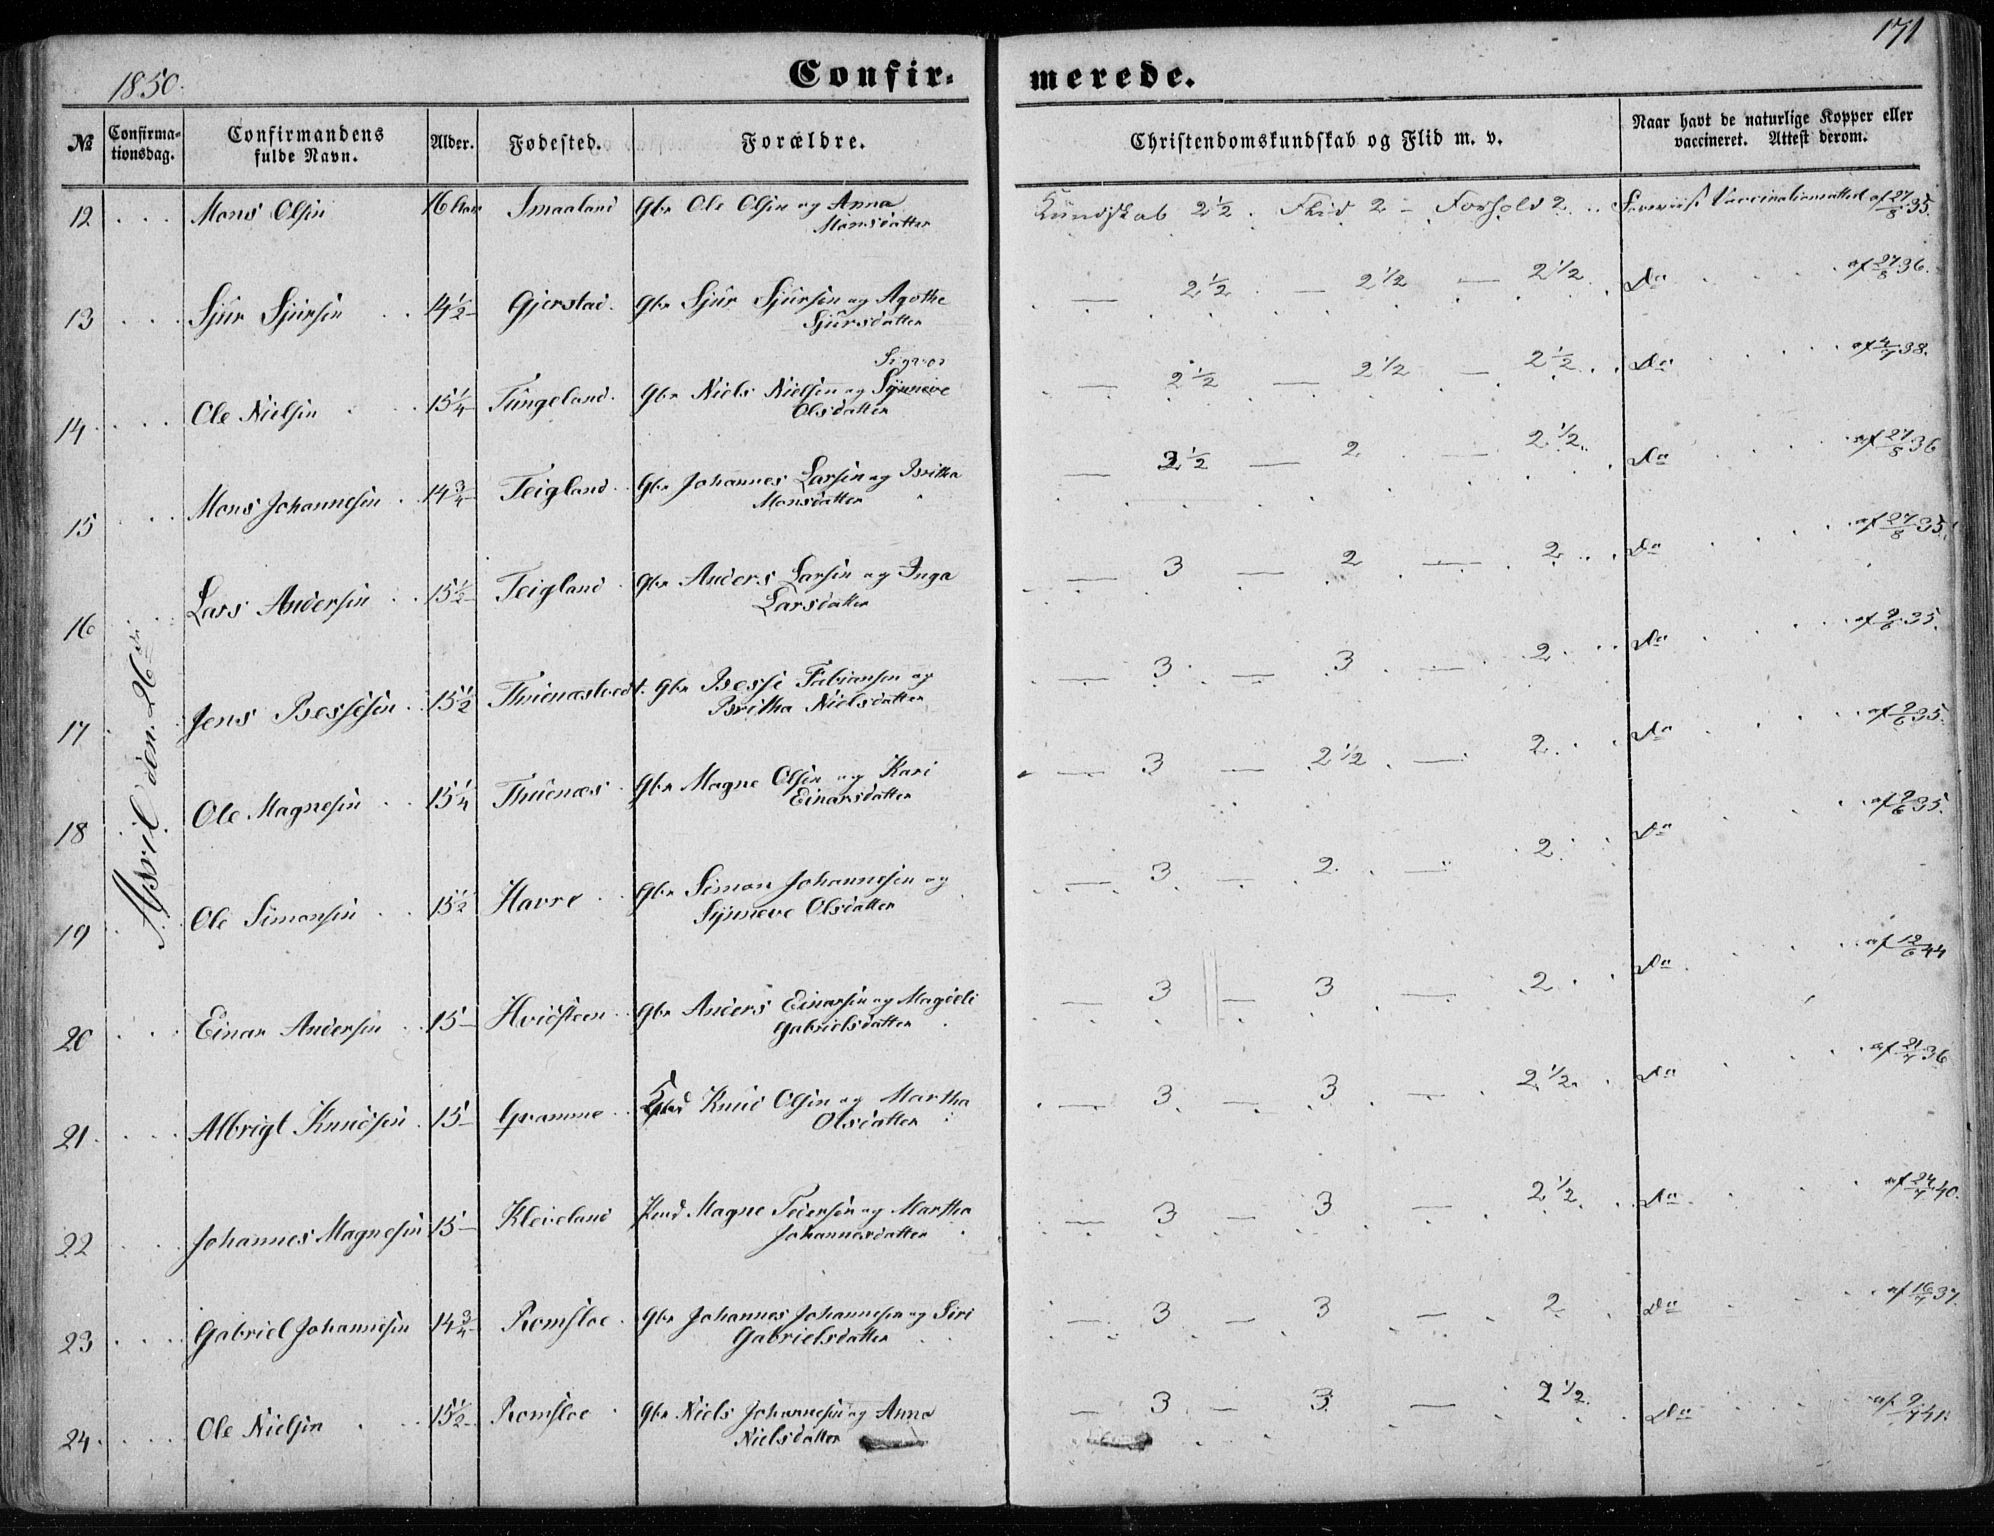 171
1850.
Confir- merede.
№ Confirma- tionsdag. Confirmandens fulde Navn. Alder. Fødested. Forældre. Christendomskundskab og Flid m. v. Naar havt de naturlige Kopper eller vaccineret. Attest derom.
April den 26de
12 Mons Olsen 16 Aar Smaaland Gbr Ole Olsen og Anna Kundskab 2½. Flid 2 – Forhold 2. Foreviist Vaccinationsattest af 27/8 35.
Monsdatter
13 Sjur Sjursen 14½ Gjerstad. Gbr Sjur Sjursen og Agothe — 2½ — 2½ — 2½ Do af 27/8 36.
Sjursdatter
14 Ole Nielsen 15¼ Tungeland. Gbr Niels Nielsen og Synneve — 2½ — 2½ — 2½ Do af 4/7 38.
Olsdatter
15 Mons Johannesen 14¾ Teigland Gbr Johannes Larsen og Britha — 2½ — 2 — 2½ Do af 27/8 36
Monsdatter
16 Lars Andersen 15½ Teigland Gbr Anders Larsen og Inga — 3 — 2 — 2 Do af 27/8 35
Larsdatter
17 Jens Bessesen 15½ Thuenæstvedt. Gbr Besse Fabiansen og — 3 — 3 — 2 Do af 9/6 35.
Britha Nielsdatter
18 Ole Magnesen 15¼ Thuenæs Gbr Magne Olsen og Kari — 3 — 2½ — 2 Do af 9/6 35.
Einarsdatter
19 Ole Simonsen 15½ Havre Gbr Simon Johannesen og — 3 — 2 — 2 Do af 9/6 35.
Synneve Olsdatter
20 Einar Andersen 15 Hvidsteen Gbr Anders Einarsen og Magdeli — 3 — 3 — 2 Do af 12/6 44
Gabrielsdatter
21 Albrigt Knudsen 15 Gramme Knud Olsen og Martha — 3 — 3 — 2½ Do af 21/7 36
Olsdatter
22 Johannes Magnesen 15 Kleiveland Magne Pedersen og Martha — 3 — 3 — 2½ Do af 24/7 40.
Johannesdatter
23 Gabriel Johannesen 14¾ Romsloe Gbr Johannes Johannesen og Siri — 3 — 3 — 2 Do af 16/7 37.
Gabrielsdatter
24 Ole Nielsen 15½ Romsloe Gbr Niels Johannesen og Anna — 3 — 3 — 2½ Do af 9/7 41.
Nielsdatter